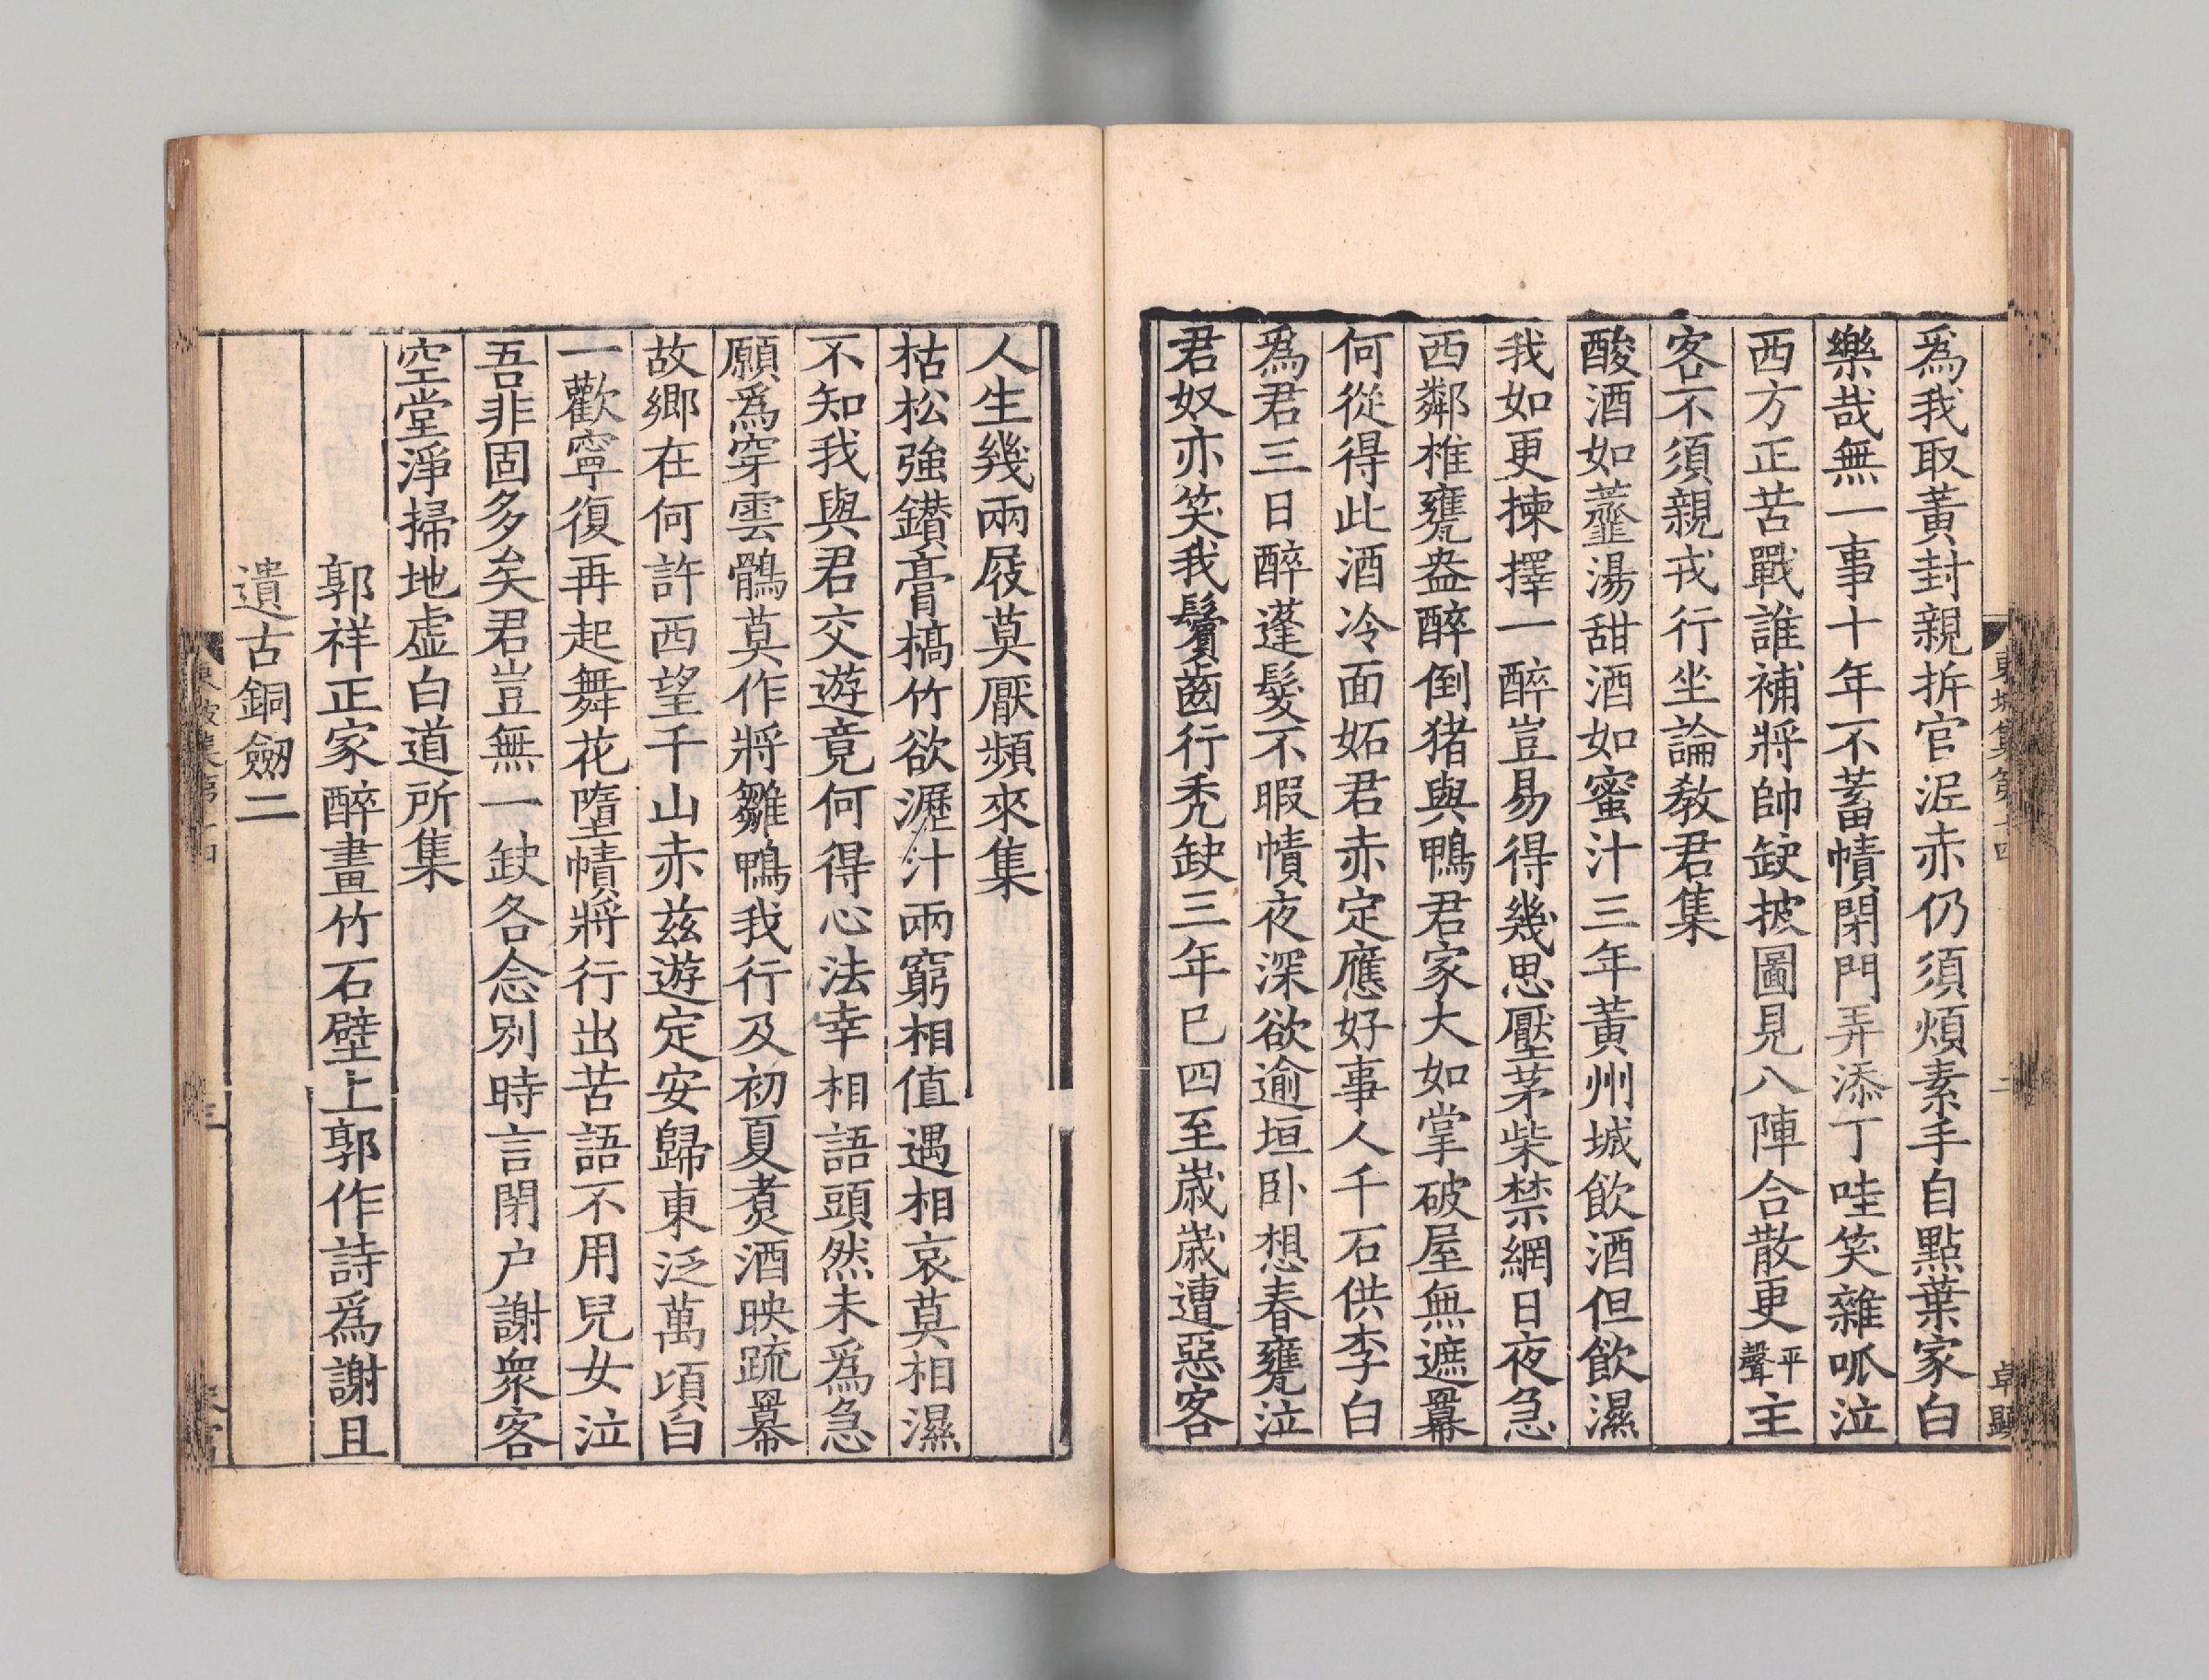 爲我取黃封親拆官泥赤仍須煩素手自點葉家白
樂哉無一事十年不蓄幘閉門弄添丁哇笑雜呱泣
西方正苦戰誰補將帥缺披圖見八陣合散更平聲主
客不須親戎行坐論敎君集
酸酒如虀湯甜酒如蜜汁三年黃州城飲酒但飲濕
我如更揀擇一醉豈易得幾思壓茅柴禁網日夜急
西鄰椎甕盎醉倒猪與鴨君家大如掌破屋無遮羃
何從得此酒冷面妬君赤定應好事人千石供李白
爲君三日醉蓬髮不暇幘夜深欲逾垣卧想春甕泣
君奴亦笑我鬢齒行禿缺三年已四至歲歲遭惡客
人生幾兩屐莫厭頻來集
枯松強鑽膏槁竹欲瀝汁兩窮相值遇相哀莫相濕
不知我與君交遊竟何得心法幸相語頭然未爲急
願爲穿雲鶻莫作將雛鴨我行及初夏煑酒映疏羃
故鄉在何許西望千山赤茲遊定安歸東泛萬頃白
一歡寧復再起舞花墮幘將行出苦語不用兒女泣
吾非固多矣君豈無一缺各念別時言閉户謝衆客
空堂淨掃地虛白道所集
郭祥正家醉畫竹石壁上郭作詩爲謝且
遺古銅劒二
東坡集第十四
二
卓顯
東坡集第十四
三